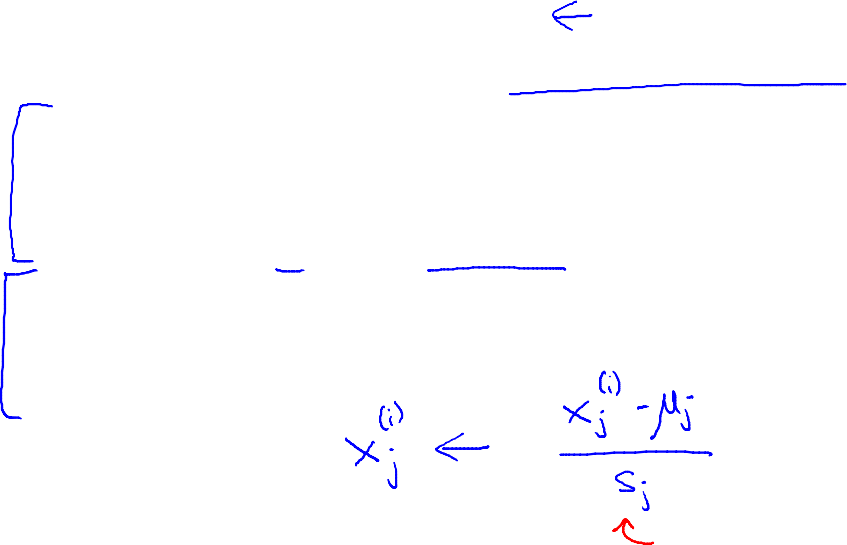 ←
x_j^{(i)} ← \frac{x_j^{(i)} - μ_j}{s_j}